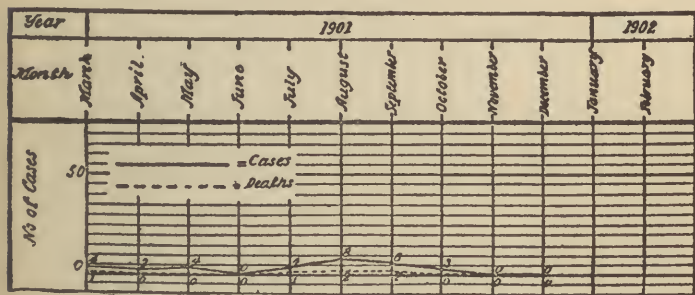 Year 1901 1902
Month March April. May June July August September October November December January February
No of Cases
50
= Cases
= Deaths
0
2 4 0 8 6 3 0 0
1 0 0 0 1 2 2 0 0 0